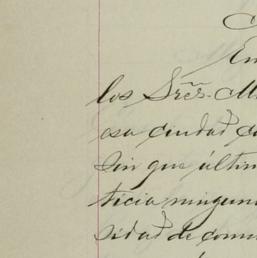 En
los Sres. M
esa ciudad c
sin que últim
ticia ningun
sidad de comu